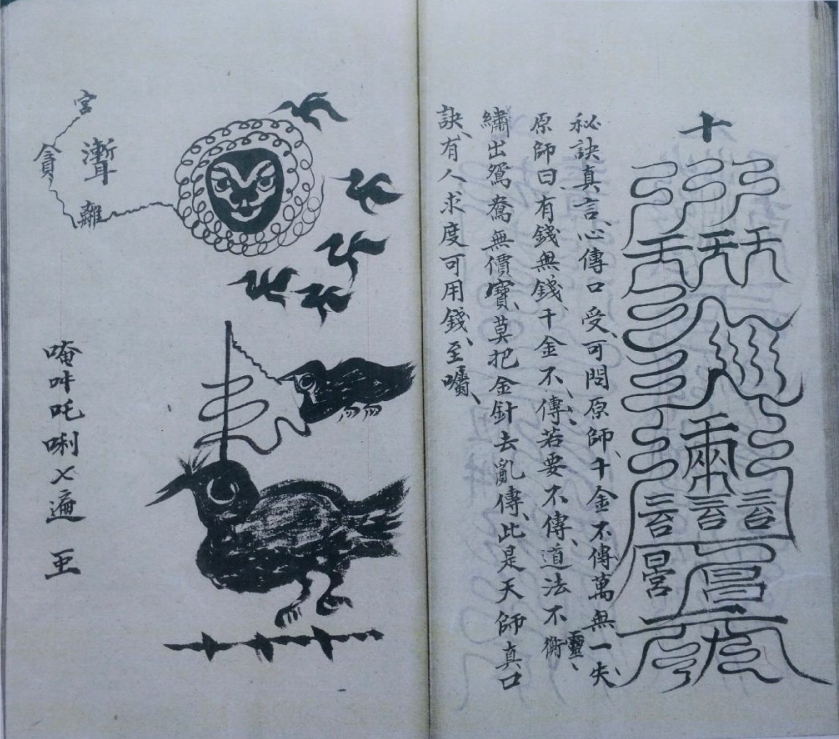 十
秘訣真言、心傳口受、可問原師、千金不傳、萬無一失、
原師曰有錢無錢千金不傳、若要不傳、道法不靈、
繡出鴛鴦無價寶、莫把金針去亂傳、此是天師真口
訣、有人求度可用錢、至囑、
宮
貪
離
唵吽吒唎乂遍